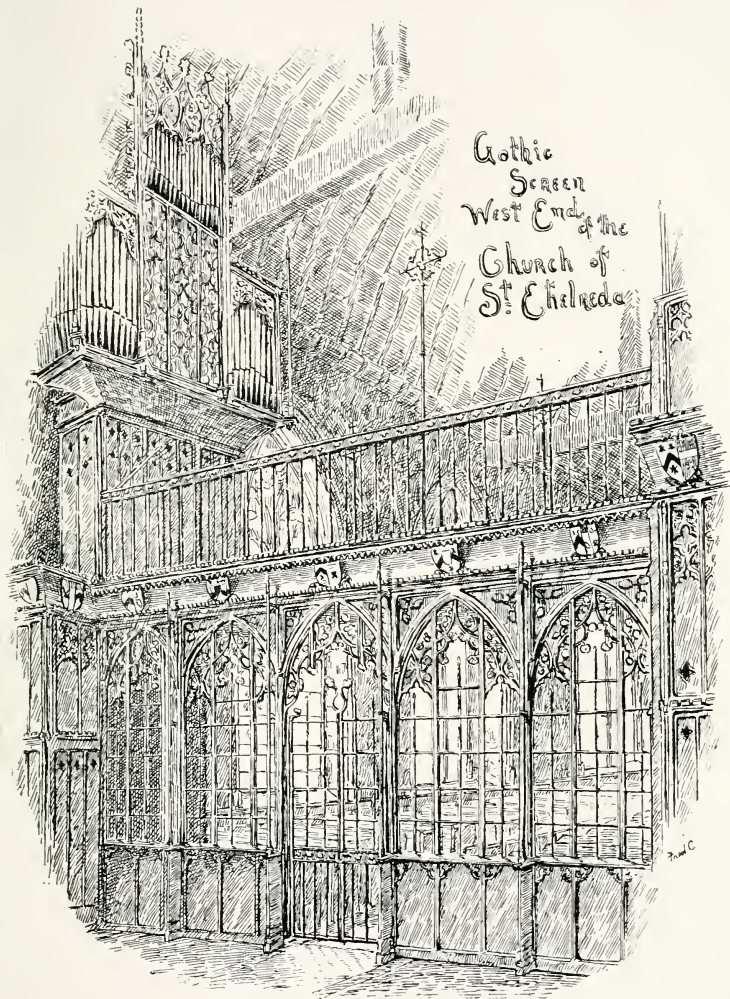 Gothic
Screen
West End of the
Church of
St Etheldreda